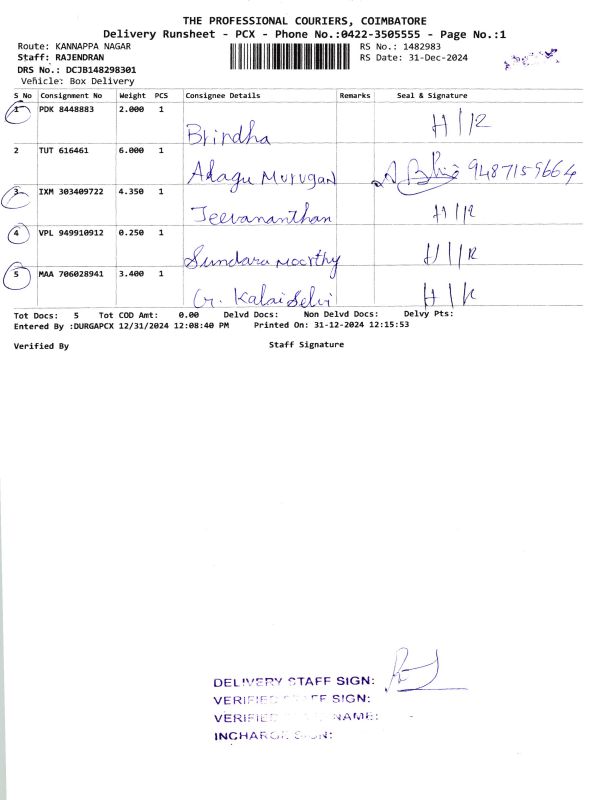 THE PROFESSIONAL COURIERS, COIMBATORE
Delivery Runsheet - PCX - Phone No.:0422-3505555 - Page No.:1
Route: KANNAPPA NAGAR RS No.: 1482983
Staff: RAJENDRAN RS Date: 31-Dec-2024
DRS No.: DCJB148298301
Vehicle: Box Delivery
S No Consignment No Weight PCS Consignee Details Remarks Seal & Signature
1 PDK 8448883 2.000 1
Brindha H/R
2 TUT 616461 6.000 1
Alagu Murugan 9487159664
3 IXM 303409722 4.350 1
Jeevananthan H/R
4 VPL 949910912 0.250 1
Sundara moorthy H/R
5 MAA 706028941 3.400 1
G. Kalaiselvi H/R
Tot Docs: 5 Tot COD Amt: 0.00 Delvd Docs: Non Delvd Docs: Delvy Pts:
Entered By :DURGAPCX 12/31/2024 12:08:40 PM Printed On: 31-12-2024 12:15:53
Verified By Staff Signature
DELIVERY STAFF SIGN:
VERIFIED STAFF SIGN:
VERIFIED STAFF NAME:
INCHARGE SIGN: